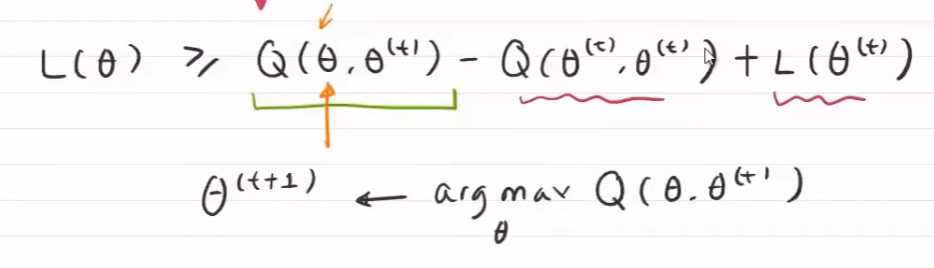 L(θ) ≥ Q(θ, θ^(t)) - Q(θ^(t), θ^(t)) + L(θ^(t))
θ^(t+1) ← arg max Q(θ, θ^(t))
θ